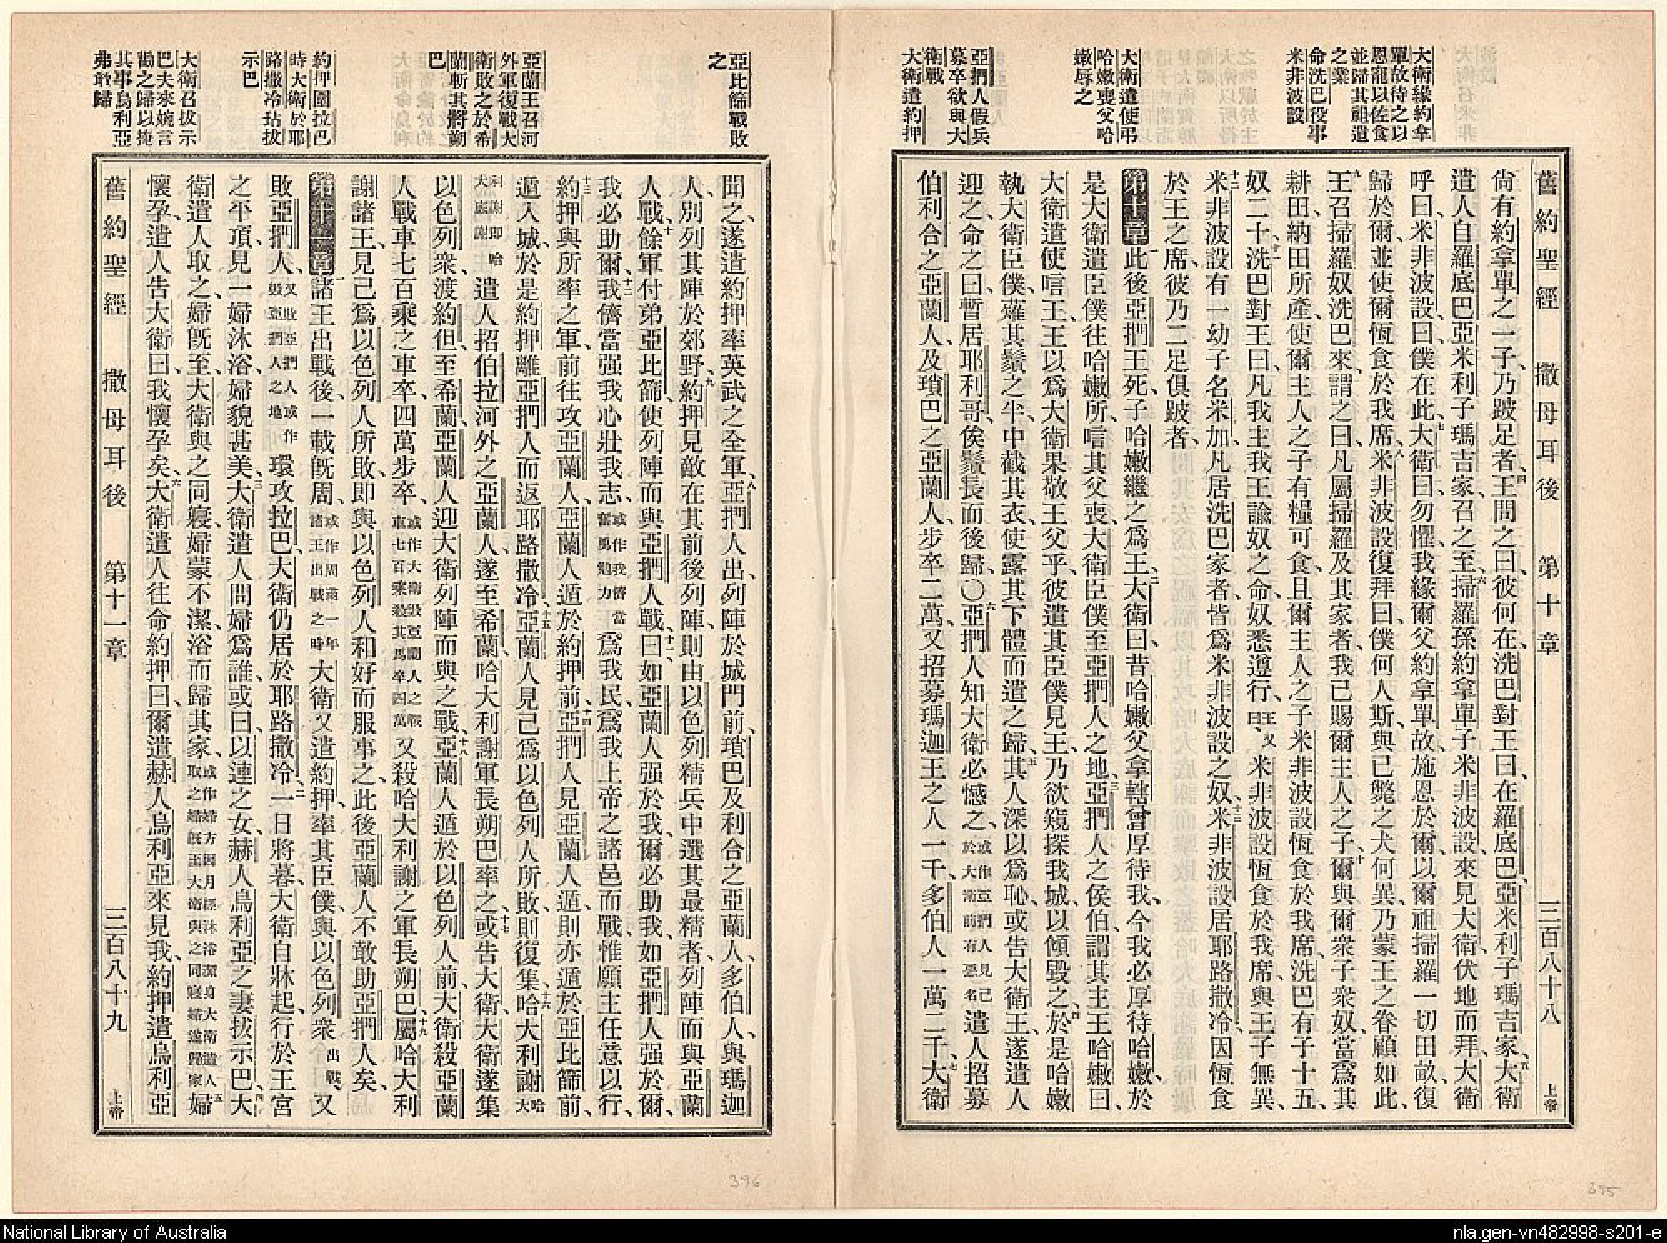 大衛緣約拿
單故待之以
恩寵以佐食
並歸其祖遺
之業
命洗巴役事
米非波設
大衛遣使弔
哈嫩喪父哈
嫩辱之
亞捫人假兵
募卒欲與大
衛戰
大衛遣約押
舊約聖經 撒母耳後 第十章 三百八十八 上帝
尙有約拿單之一子、乃跛足者、四王問之曰、彼何在、洗巴對王曰、在羅底巴亞米利子瑪吉家、五大衛
遣人自羅底巴亞米利子瑪吉家召之至、六掃羅孫約拿單子米非波設來見大衛、伏地而拜、大衛
呼曰、米非波設、曰、僕在此、七大衛曰、勿懼、我緣爾父約拿單故、施恩於爾、以爾祖掃羅一切田畝復
歸於爾、並使爾恆食於我席、八米非波設復拜曰、僕何人斯、與已斃之犬何異、乃蒙王之眷顧如此、
九王召掃羅奴洗巴來、謂之曰、凡屬掃羅及其家者、我已賜爾主人之子、十爾與爾衆子衆奴、當爲其
耕田、納田所產、使爾主人之子有糧可食、且爾主人之子米非波設、恆食於我席、洗巴有子十五、
奴二十、十一洗巴對王曰、凡我主我王諭奴之命、奴悉遵行、王又曰、米非波設恆食於我席、與王子無異、
十二米非波設有一幼子名米加、凡居洗巴家者、皆爲米非波設之奴、十三米非波設居耶路撒冷、因恆食
於王之席、彼乃二足俱跛者、
第十章 一此後亞捫王死、子哈嫩繼之爲王、二大衛曰、昔哈嫩父拿轄曾厚待我、今我必厚待哈嫩、於
是大衛遣臣僕往哈嫩所、唁其父喪、大衛臣僕至亞捫人之地、三亞捫人之侯伯、謂其主王哈嫩曰、
大衛遣使唁王、王以爲大衛果敬王父乎、彼遣其臣僕見王、乃欲窺探我城、以傾毀之、四於是哈嫩
執大衛臣僕、薙其鬚之半、中截其衣、使露其下體而遣之歸、五其人深以爲恥、或告大衛王、遂遣人
迎之、命之曰、暫居耶利哥、俟鬚長而後歸、○六亞捫人知大衛必憾之、或作亞捫人見己於大衛前有惡名 遣人招募
伯利合之亞蘭人、及瑣巴之亞蘭人、步卒二萬、又招募瑪迦王之人一千、多伯人一萬二千、七大衛
395
亞比篩戰敗
之
亞蘭王召河
外軍復戰大
衛敗之於希
蘭斬其將朔
巴
約押圍拉巴
時大衛於耶
路撒冷玷拔
示巴
大衛召拔示
巴夫來婉言
勸之歸以掩
其事烏利亞
弗敢歸
聞之、遂遣約押率英武之全軍、八亞捫人出、列陣於城門前、瑣巴及利合之亞蘭人、多伯人、與瑪迦
人、別列其陣於郊野、九約押見敵在其前後列陣、則由以色列精兵中選其最精者、列陣而與亞蘭
人戰、十餘軍付弟亞比篩、使列陣而與亞捫人戰、十一曰、如亞蘭人强於我、爾必助我、如亞捫人强於爾、
我必助爾、十二我儕當强我心、壯我志、或作我儕當奮風勉力 爲我民、爲我上帝之諸邑而戰、惟願主任意以行、
十三約押與所率之軍、前往攻亞蘭人、亞蘭人遁於約押前、十四亞捫人見亞蘭人遁、則亦遁於亞比篩前、
遁入城、於是約押離亞捫人而返耶路撒冷、十五亞蘭人見己爲以色列人所敗、則復集、十六哈大利謝哈大
利謝即哈大底謝 遣人招伯拉河外之亞蘭人、遂至希蘭、哈大利謝軍長朔巴率之、十七或告大衛、大衛遂集
以色列衆、渡約但、至希蘭、亞蘭人迎大衛列陣而與之戰、十八亞蘭人遁於以色列人前、大衛殺亞蘭
人戰車七百乘之車卒、四萬步卒、或作大衛毀亞蘭人之戰車七百乘殺其馬卒四萬 又殺哈大利謝之軍長朔巴、十九屬哈大利
謝諸王、見己爲以色列人所敗、即與以色列人和好而服事之、此後亞蘭人不敢助亞捫人矣、
第十一章 一諸王出戰後一載旣周、或作周歲一年諸王出戰之時 大衛又遣約押、率其臣僕與以色列衆出戰、又
敗亞捫人、又敗亞捫人或作毀亞捫人之地 環攻拉巴、大衛仍居於耶路撒冷、二一日將暮、大衛自牀起、行於王宮
之平頂、見一婦沐浴、婦貌甚美、三大衛遣人問婦爲誰、或曰、以連之女、赫人烏利亞之妻拔示巴、四大
衛遣人取之、婦旣至、大衛與之同寢、婦蒙不潔、浴而歸其家、或作婦方因月經沐浴潔身大衛遣人取之婦旣至大衛與之同寢婦遂歸家 五婦
懷孕、遣人告大衛曰、我懷孕矣、六大衛遣人往命約押曰、爾遣赫人烏利亞來見我、約押遣烏利亞
舊約聖經 撒母耳後 第十一章 三百八十九 上帝
396
National Library of Australia
nla.gen-vn482998-s201-e